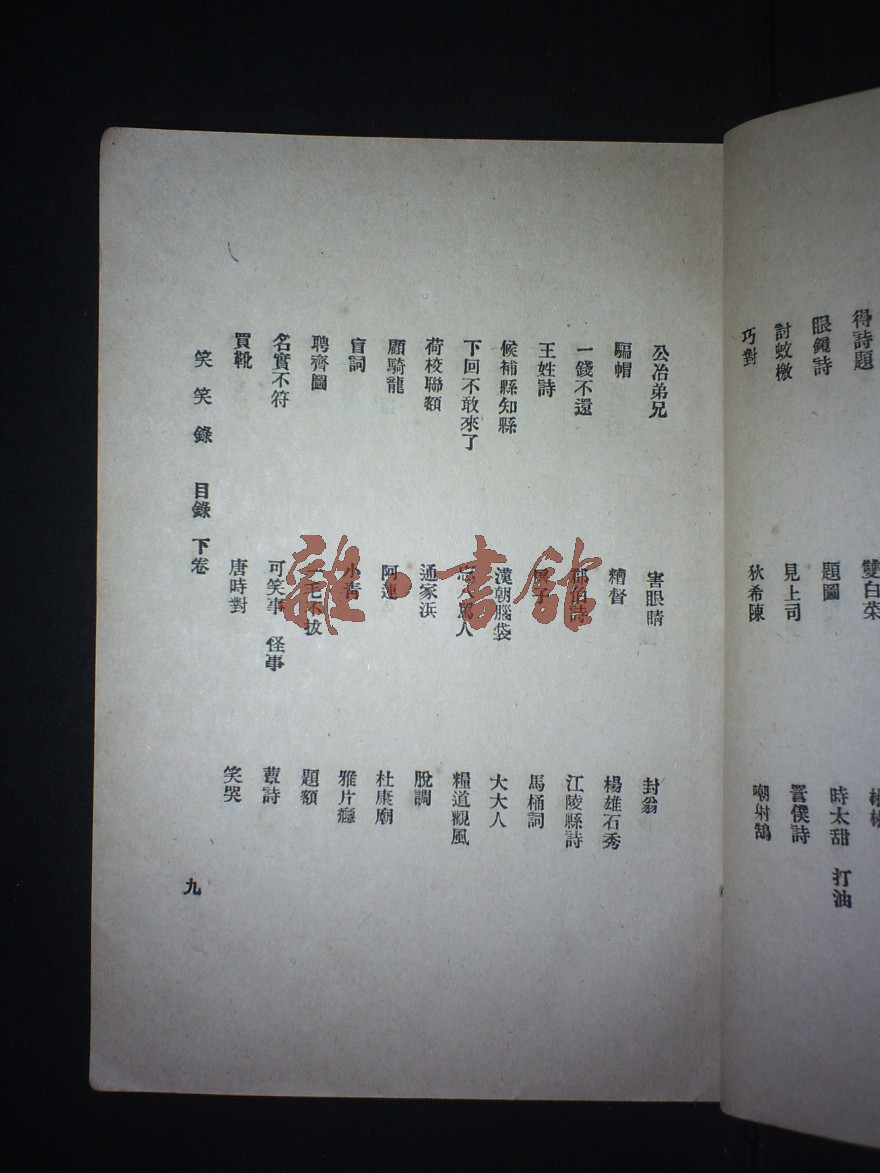 得詩題 雙白菜
眼鏡詩 題圖 時太甜 打油
討蚊檄 見上司 詈僕詩
巧對 狄希陳 嘲射鵠
公冶弟兄 害眼睛 封翁
騙帽 糟督 楊雄石秀
一錢不還 詩 江陵縣詩
王姓詩 子 馬桶詞
候補縣知縣 漢朝腦袋 大大人
下回不敢來了 罵人 糧道觀風
荷校聯額 通家浜 脫調
顧騎龍 阿連 杜康廟
盲詞 小青 雅片癮
聘齊圖 一毛不拔 題額
名實不符 可笑事 怪事 蕈詩
買靴 唐時對 笑哭
笑笑錄 目錄 下卷 九
雜·書館